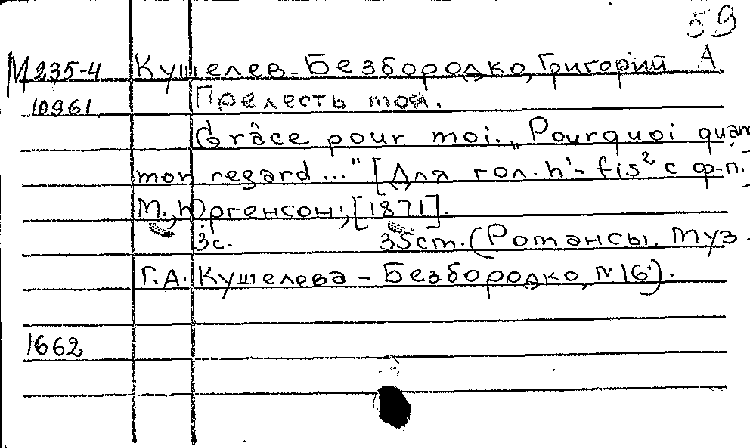 59
М 235-4 Кушелев-Безбородко, Григорий А
10961 Прелесть моя.
Grâce pour moi. "Pourquoi quand
mon regard..." [Для гол. h¹-fis² с ф-п.]
М., Юргенсон, [1871].
3с. 35 ст. (Романсы. Муз.
Г.А. Кушелева-Безбородко, № 16).
1662